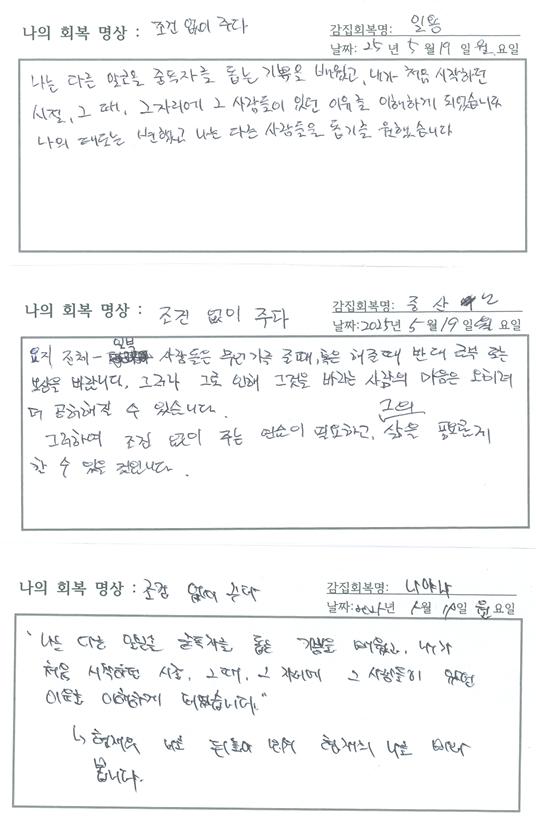 나의 회복 명상 : 조건 없이 주다
감집회복명: 일용
날짜: 25 년 5 월 19 일 월 요일
나는 다른 알코올 중독자를 돕는 기쁨을 배웠고, 내가 처음 시작하던
시절, 그 때, 그 자리에 그 사람들이 있던 이유를 이해하게 되었습니다
나의 태도는 변했고 나는 다른 사람들을 돕기를 원했습니다
나의 회복 명상 : 조건 없이 주다
감집회복명: 중산
날짜: 2025년 5 월 19 일 월 요일
요지 전체 - 일부 사람들은 무언가를 줄 때, 혹은 해줄 때 반대
보상을 바랍니다. 그러나 그로 인해 그것을 바라는 사람의 마음은 오히려
더 공허해질 수 있습니다.
그리하여 조건 없이 주는 연습이 필요하고, 그의 삶을 풍요롭게
할 수 있을 것입니다.
나의 회복 명상 : 조건 없이 주다
감집회복명: 나야나
날짜: 년 월 19일 월 요일
"나는 다른 알코올 중독자를 돕는 기쁨을 배웠고, 내가
처음 시작하던 시절, 그 때, 그 자리에 그 사람들이 있던
이유를 이해하게 되었습니다."
↳ 현재의 나를 현재의 나로
봅니다.